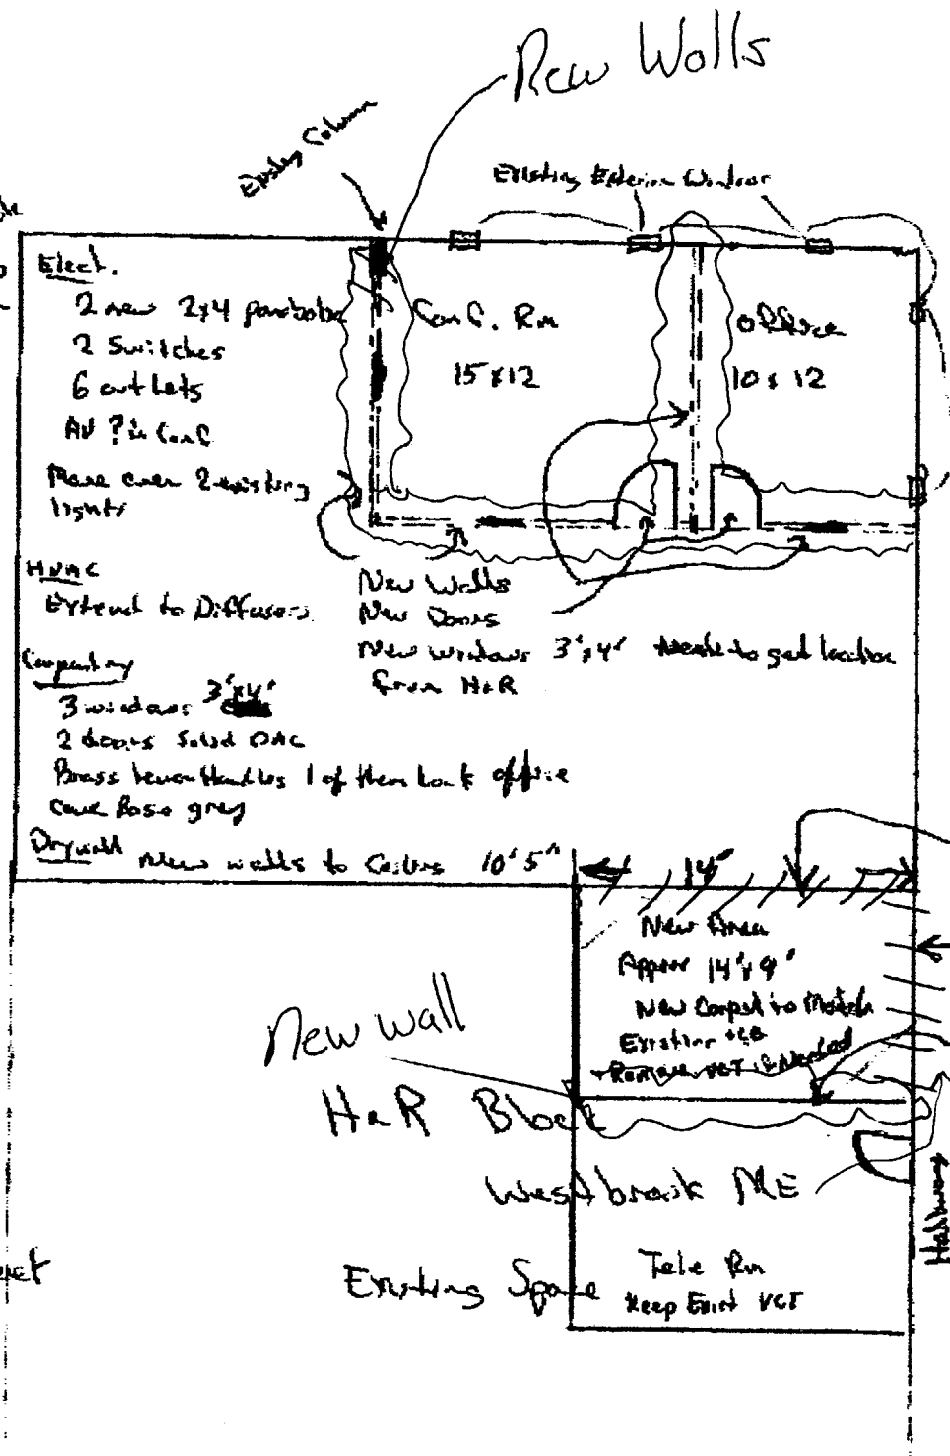 New Walls
Existing Column
Existing Exterior Windows
Elect.
2 new 2x4 parabolic
2 Switches
6 outlets
AV ? in Conf
Move over 2 existing
lights
Conf. Rm
15 x 12
office
10 x 12
HVAC
Extend to Diffusers
New Walls
New Doors
New Windows 3'x4' to get location
from H&R
Carpentry
3 windows 3'x4'
2 doors Solid OAC
Brass lever Handles 1 of them Lock office
Cove Base grey
Drywall New walls to Ceilings 10'5"
14'
New Area
Approx 14'x9'
New Carpet to Match
Existing +CB
Remove VCT if Needed
New wall
H&R Block
Westbrook ME
Hallway
Existing Space
Tele Rm
Keep Exist VCT